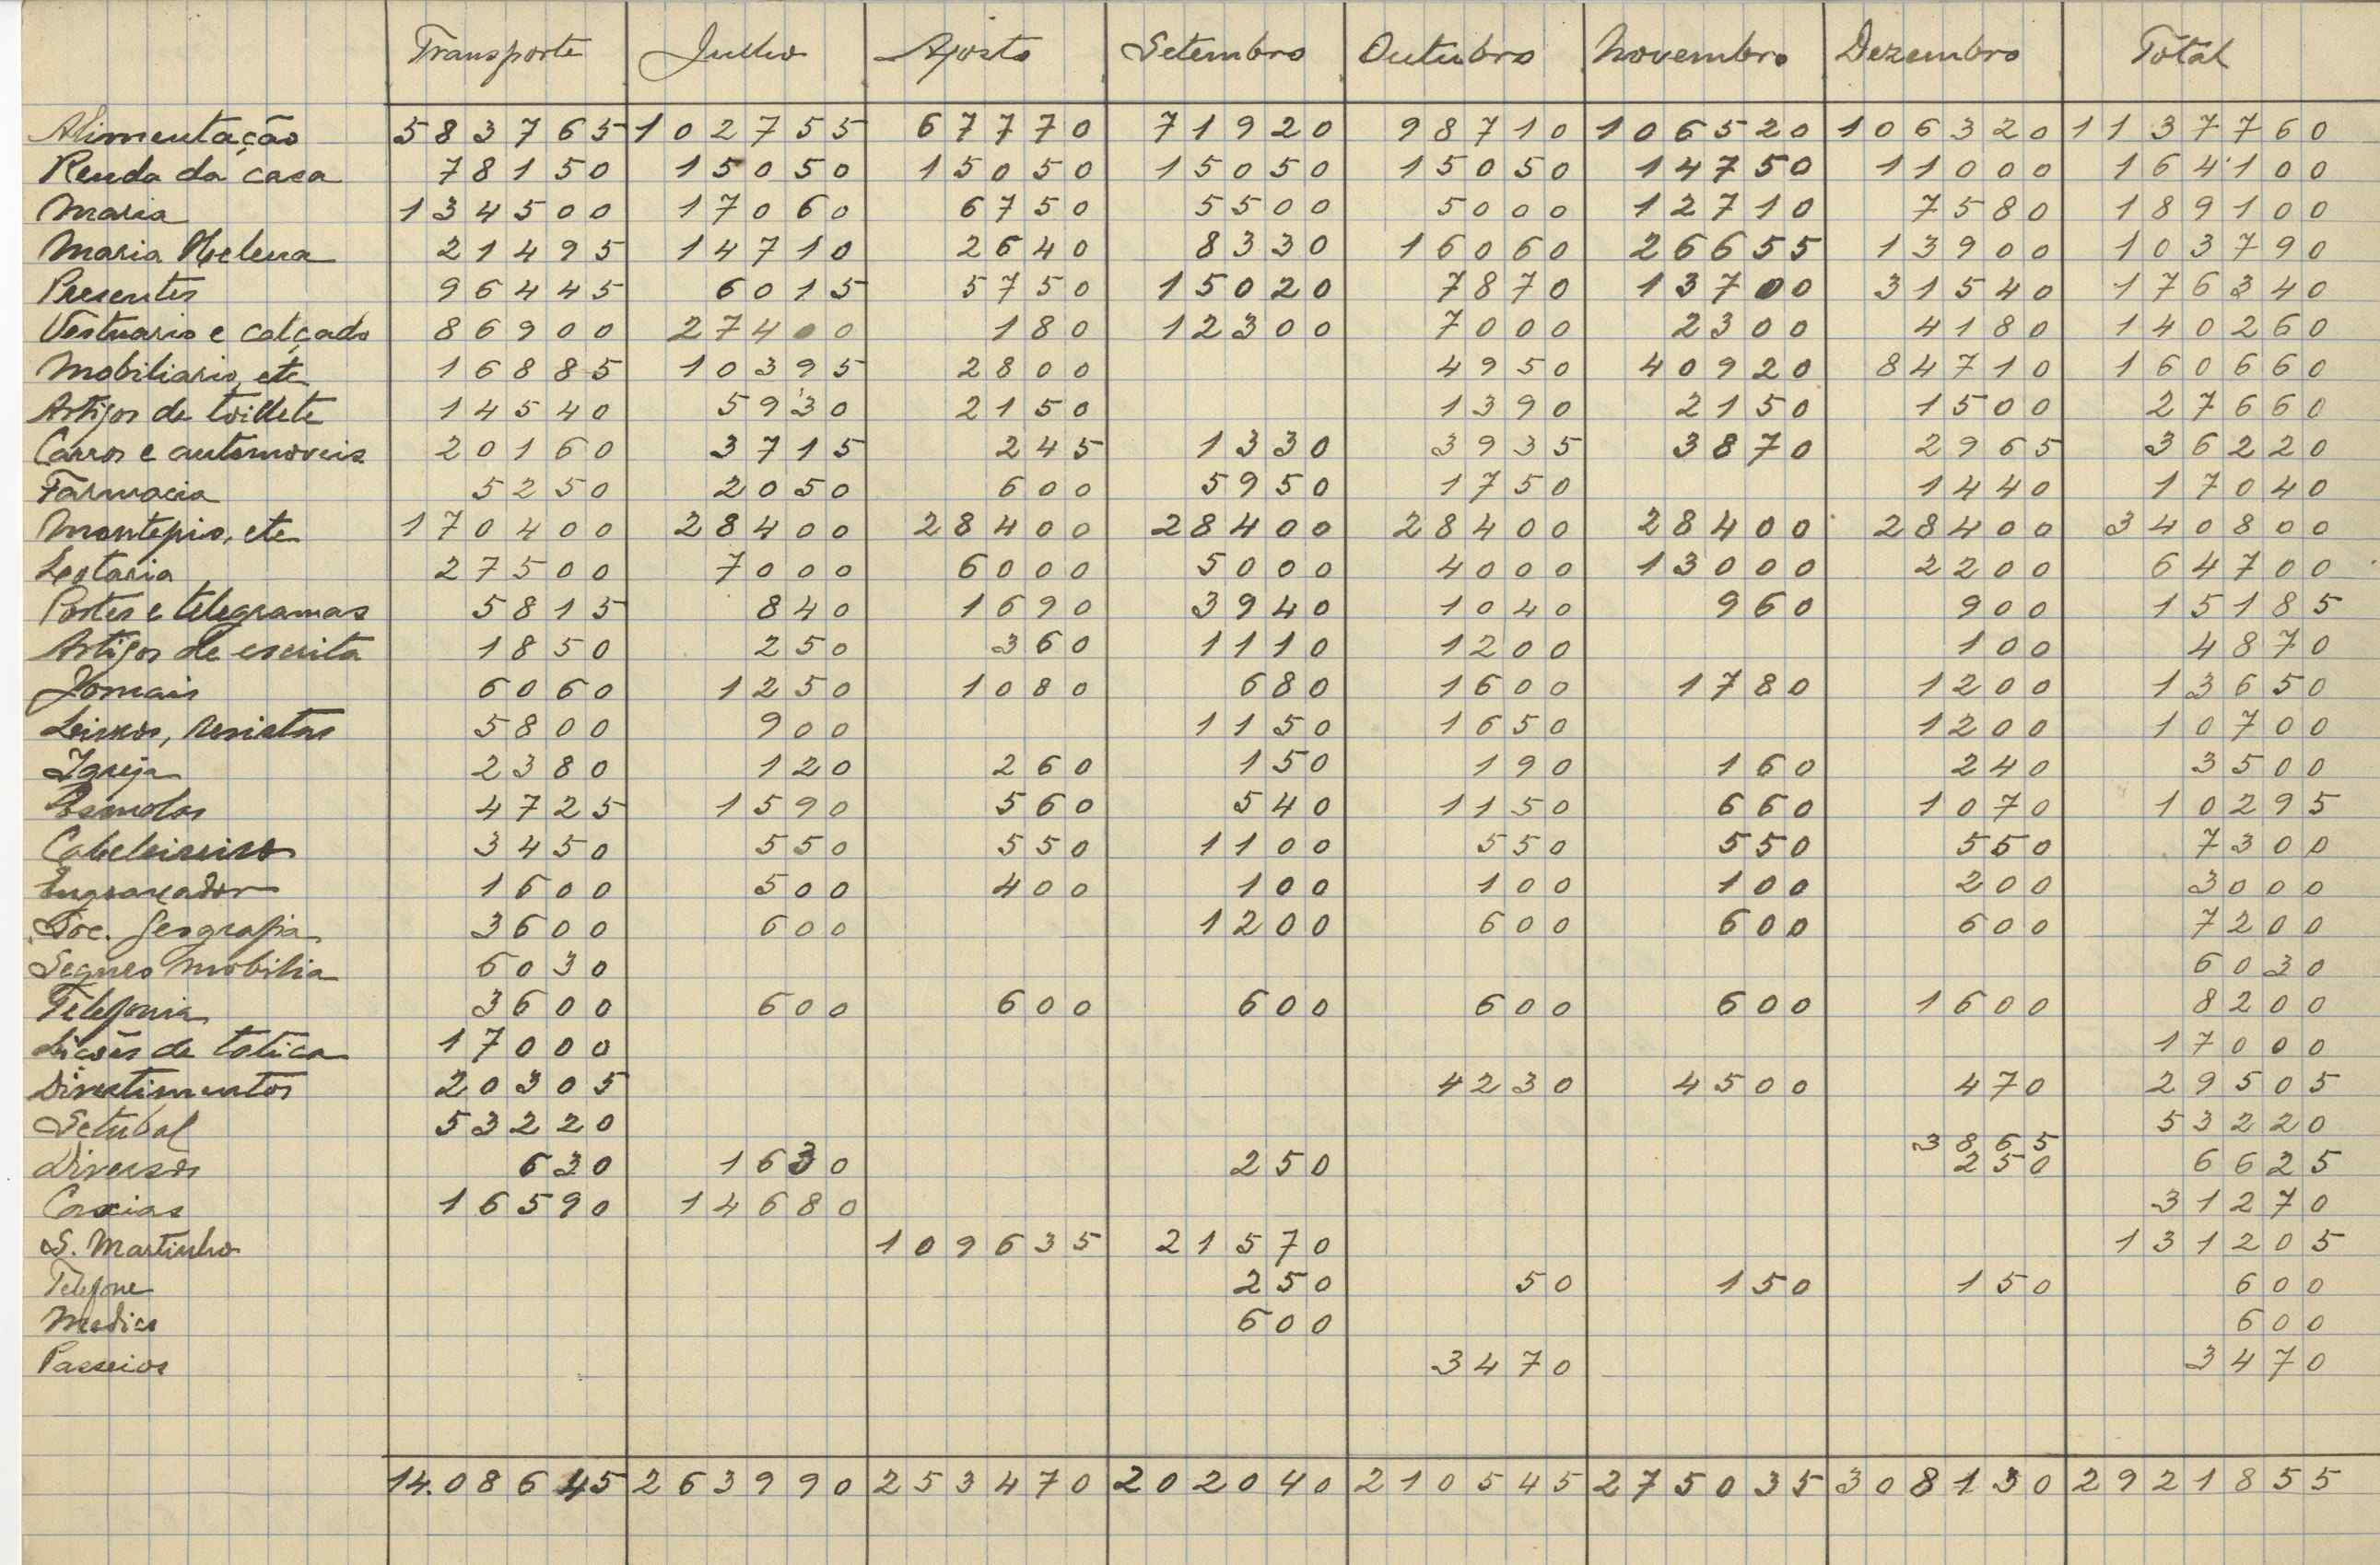 Transporte Julho Agosto Setembro Outubro Novembro Dezembro Total
Alimentação 583765 102755 67770 71920 98710 106520 106320 1137760
Renda da casa 78150 15050 15050 15050 15050 14750 11000 164100
Maria 134500 17060 6750 5500 5000 12710 7580 189100
Maria Helena 21495 14710 2640 8330 16060 26655 13900 103790
Presentes 96445 6015 5750 15020 7870 13700 31540 176340
Vestuario e calçado 86900 27400 180 12300 7000 2300 4180 140260
Mobiliario, etc 16885 10395 2800 4950 40920 84710 160660
Artigos de toillete 14540 5930 2150 1390 2150 1500 27660
Carros e automoveis 20160 3715 245 1330 3935 3870 2965 36220
Farmacia 5250 2050 600 5950 1750 1440 17040
Montepio, etc 170400 28400 28400 28400 28400 28400 28400 340800
Lotaria 27500 7000 6000 5000 4000 13000 2200 64700
Portes e telegramas 5815 840 1690 3940 1040 960 900 15185
Artigos de escrita 1850 250 360 1110 1200 100 4870
Jornais 6060 1250 1080 680 1600 1780 1200 13650
Livros, revistas 5800 900 1150 1650 1200 10700
Igreja 2380 120 260 150 190 160 240 3500
Esmolas 4725 1590 560 540 1150 660 1070 10295
Cabeleireiro 3450 550 550 1100 550 550 550 7300
Engraxador 1600 500 400 100 100 100 200 3000
Soc. Geografia 3600 600 1200 600 600 600 7200
Seguro mobilia 6030 6030
Telefonia 3600 600 600 600 600 600 1600 8200
Lições de tatica 17000 17000
Divertimentos 20305 4230 4500 470 29505
Setubal 53220 53220
3865
Diversos 630 1630 250 250 6625
Caxias 16590 14680 31270
S. Martinho 109635 21570 131205
Telefone 250 50 150 150 600
Medico 600 600
Passeios 3470 3470
14.08645 263990 253470 202040 210545 275035 308130 2921855